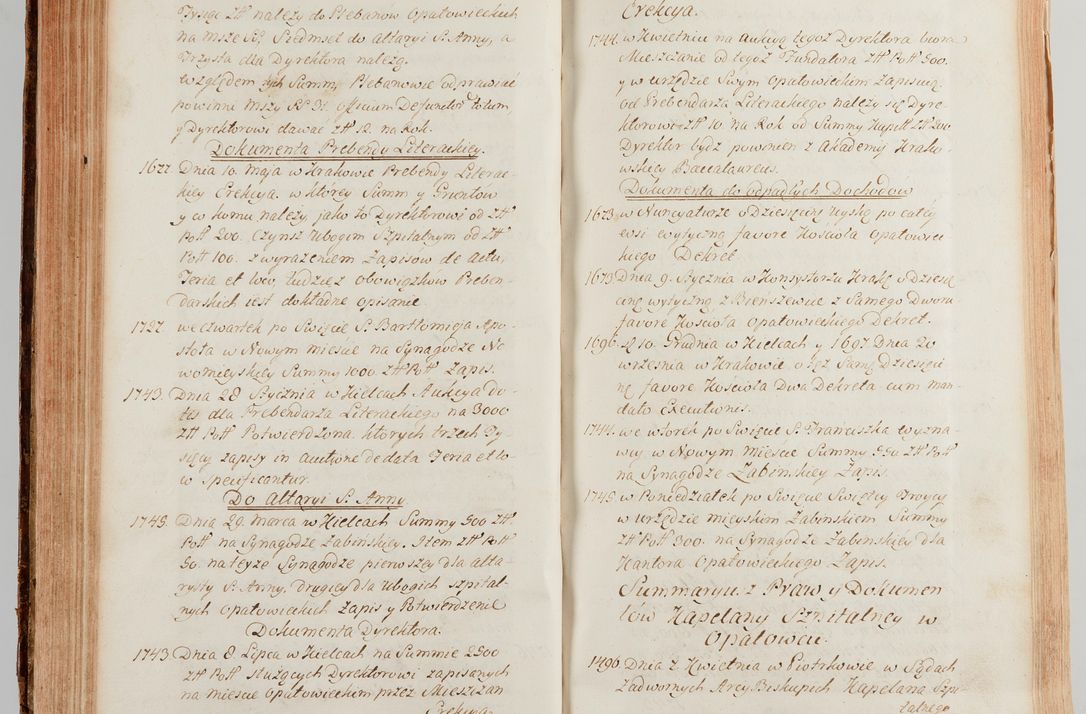 Tysiąc zł należy do Plebanow Opatowieckich
na Msze SS. Siedmset do Altaryi S. Anny, a
Trzysta dla Dyrektora należą.
Względem tych Summ Plebanowie odprawiać
powinni Mszy SS. 31. officium Defunctor totum,
y Dyrektorowi dawać zł 12. na Rok.
Dokumenta Prebendy Literackiey.
1622. Dnia 10. Maja w Krakowie Prebendy Literac-
kiey Erekcya. w ktorey Summ y Gruntow
y co komu należy, jako to Dyrektorowi od zł
Poll 200. Czynsz Ubogim Szpitalnym od zł
Poll 100. z wyrażeniem Zapisow de actu,
Feria et loco, tudziesz obowiązkow Preben-
darskich iest dokładne opisanie.
1727. we czwartek po Swięcie S. Bartłomieja Apo-
stoła w Nowym Mieście na Synagodze No
womieyskiey Summy 1000 zł Poll Zapis.
1743. Dnia 28 Stycznia w Kielcach Aukcya do-
tis dla Prebendarza Literackiego na 3000
zł Poll Potwierdzona. ktorych trzech Ty-
sięcy zapisy in auctione de data Feria et lo-
co specificantur.
Do Altaryi S. Anny.
1749. Dnia 29. Marca w Kielcach Summy 900 zł.
Poll na Synagodze Żabińskiey. Item zł Poll
50. na teyże Synagodze pierwszey dla Alta-
rysty S. Anny, drugiey dla Ubogich szpital-
nych Opatowieckich Zapis y Potwierdzenie
Dokumenta Dyrektora.
1743. Dnia 8. Lipca w Kielcach na Summie 2500
zł Poll służących Dyrektorowi zapisanych
na Mieście Opatowieckim przez Mieszczan
Erekcya.
Erekcya.
1744. w Kwietniu na Aukcyą tegoż Dyrektora biorą
Mieszczanie od tegoż Fundatora zł Poll 500.
y w Urzędzie Swym Opatowieckim Zapisuią
od Prebendarza Literackiego należy się Dyre-
ktorowi zł 10. na Rok od Summy Kapitt zł 200
Dyrektor bydź powinien z Akademij Krako-
wskiey Baccalaureus.
Dokumenta do odpadłych Dochodow
1673. w Nuncyaturze o Dziesięcinę Zyską po całey
wsi wytyczną favore Kościoła Opatowiec-
kiego Dekret.
1673. Dnia 9. Stycznia w Konsystorzu Krakg o Dziesię
cinę wytyczną z Bienszewic z Samego Dworu
favore Kościoła Opatowieckiego Dekret.
1696. 10. Grudnia w Kielcach y 1697 Dnia 20
września w Krakowie o też Samę Dziesięci
nę favore Kościoła Dwa Dekreta cum man-
dato executionis.
1744. we wtorek po Swięcie S. Franciszka wyzna-
wcy w Nowym Mieście Summy 550 zł Poll
na Synagodze Żabinskiey Zapis.
1749. w Poniedziałek po Swięcie Swiętey Troycy
w Urzędzie Mieyskim Żabinskiem Summy
zł Poll 300. na Synagodze Żabinskiey dla
Kantora Opatowieckiego Zapis.
Summaryu. z Praw y Dokumen
tów Kapelany Szpitalney w
Opatowcu.
1496. Dnia 2 Kwietnia w Piotrkowie w Sądach
Zadwornych Arcy Biskupich Kapelana Szpi-
talnego